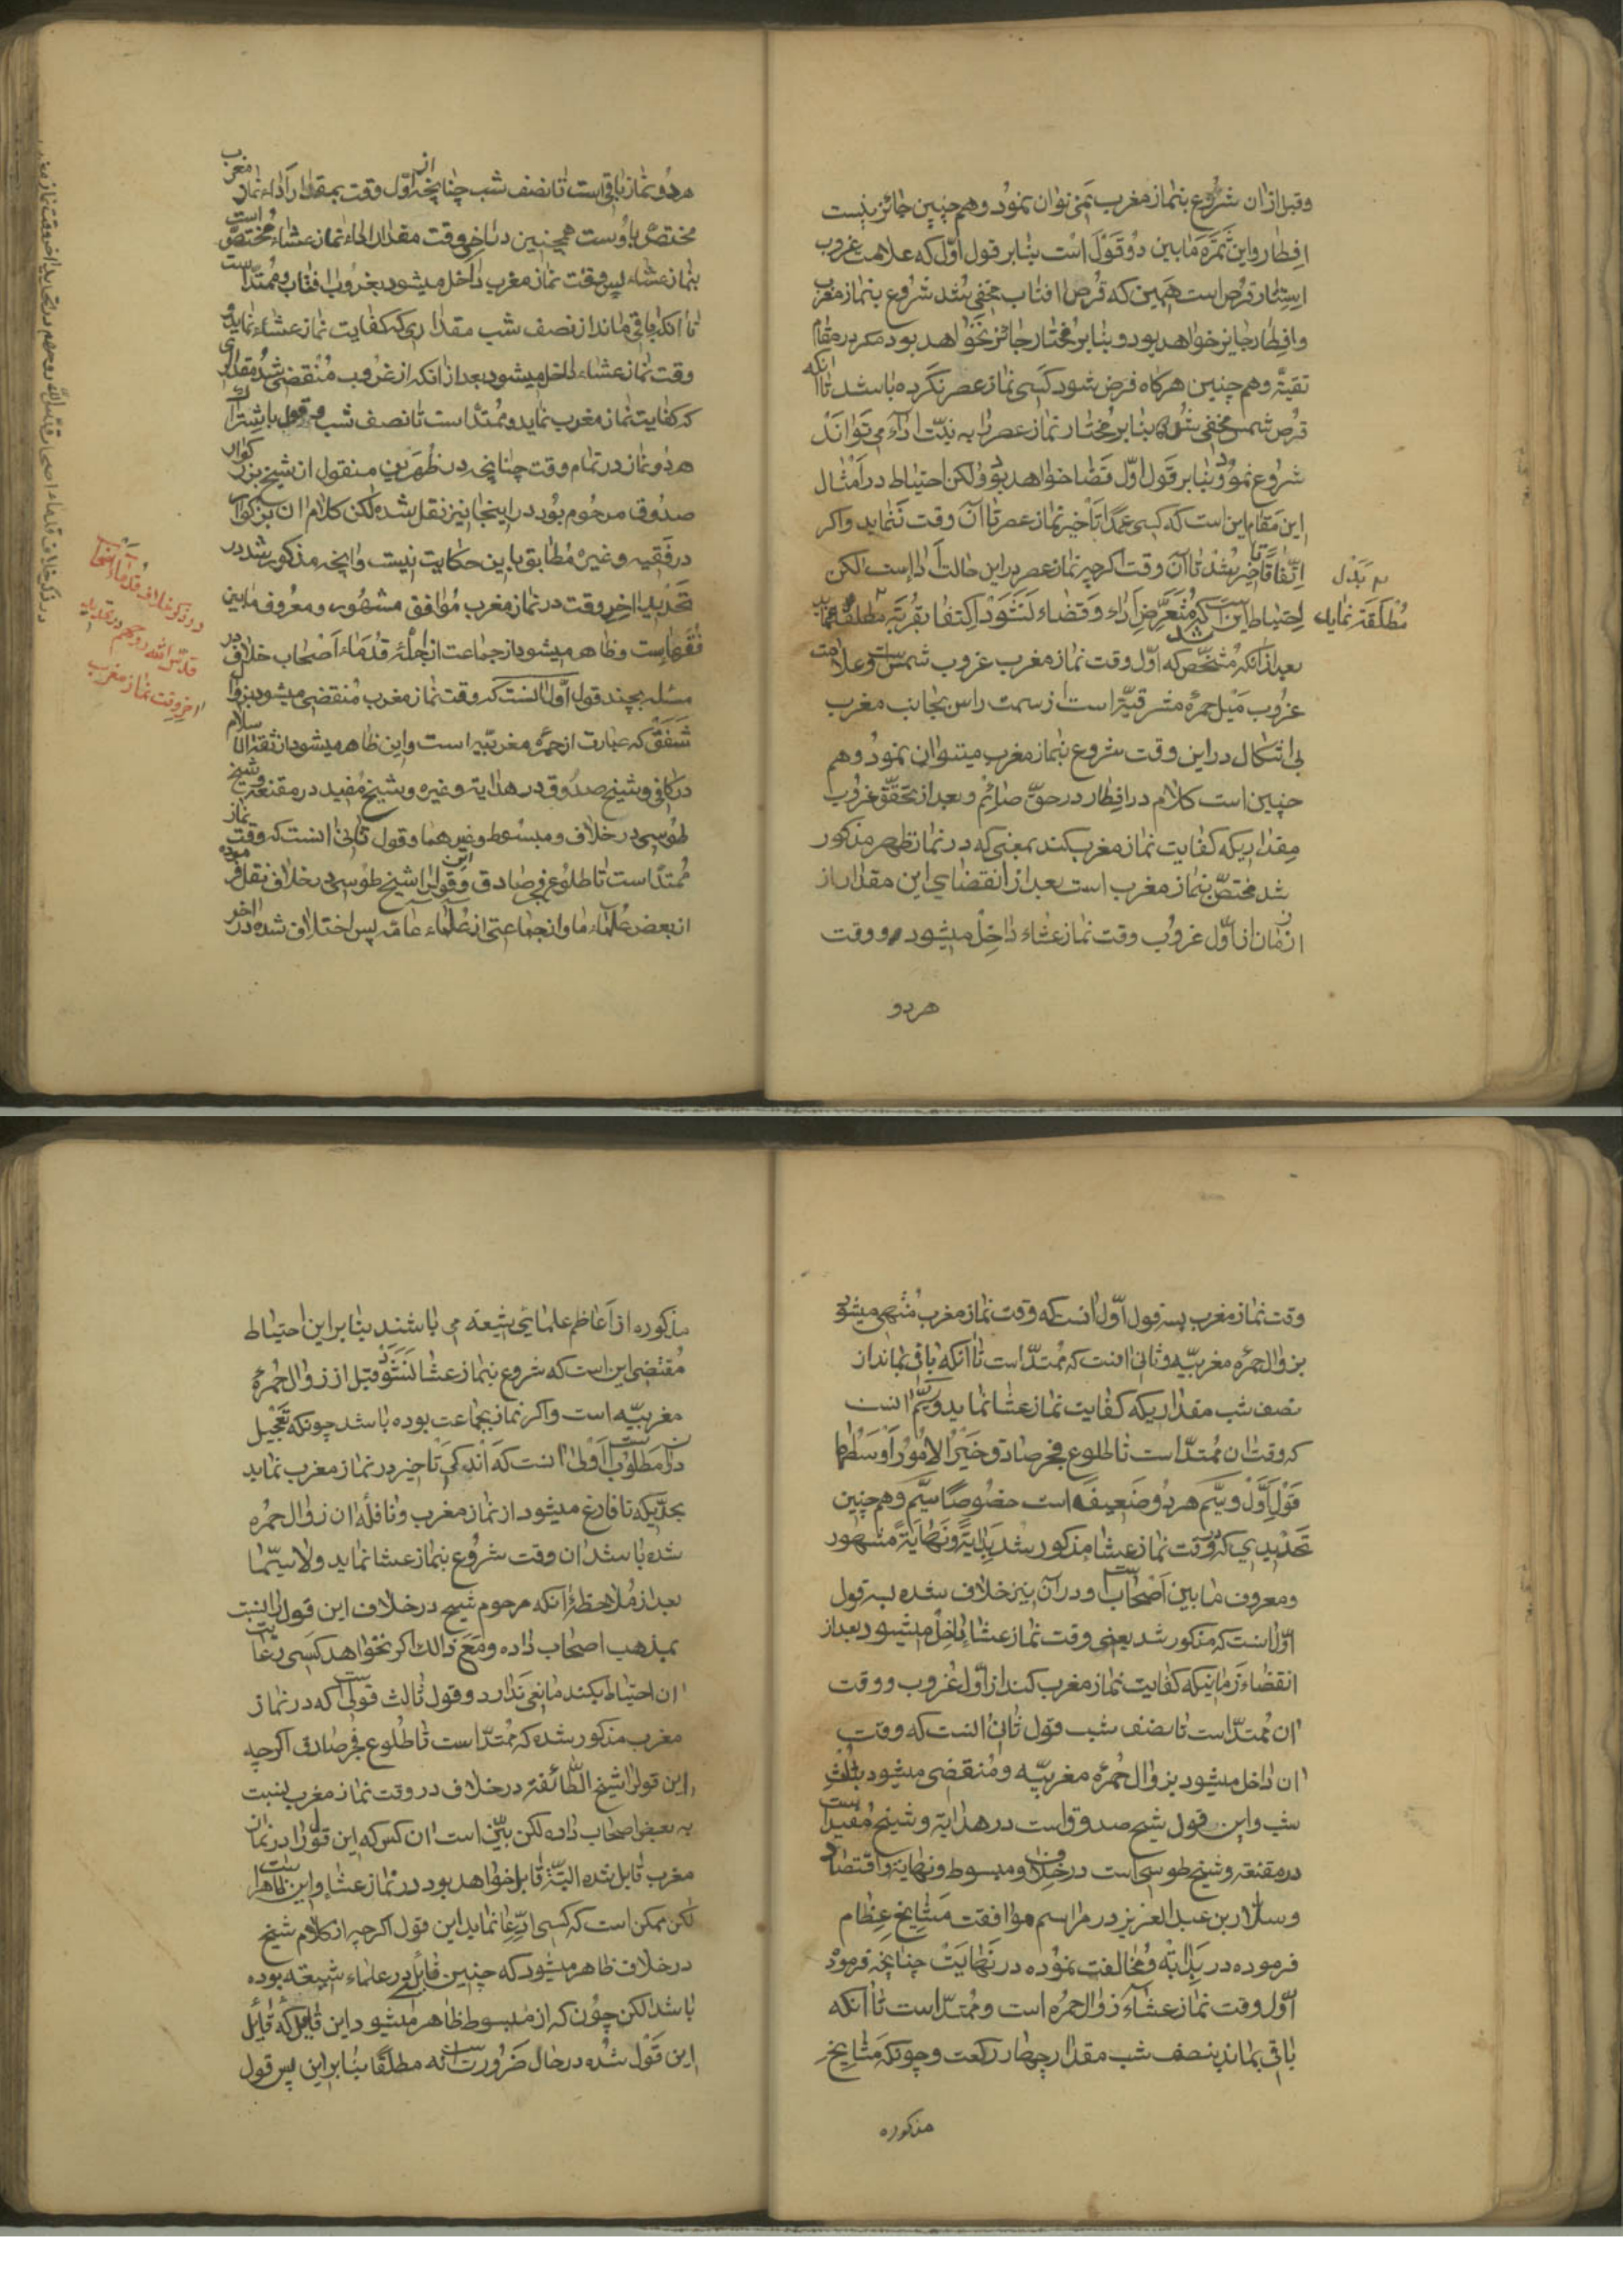 وقبل از ان شروع بنماز مغرب نمی توان نمود و هم چنین جائز نیست
افطار و این ثمره مابین دو قول است بنابر قول اوّل که علامت غروب
استتار قرص است همین که قرص افتاب مخفی شد شروع بنماز مغرب
و افطار جایز خواهد بود و بنابر مختار جائز نخواهد بود مکر در مقام
تقیّه و هم چنین هرکاه فرض شود کسی نماز عصر نکرده باشد تا انکه
قرص شمس مخفی شده بنابر مختار نماز عصر را به نیّت اداء می تواند
شروع نمود و بنابر قول اوّل قضا خواهد بود و لکن احتیاط در امثال
این مقام این است که کسی عمدًا تأخیر نماز عصر تا آن وقت ننماید و اکر
اتّفاقًا تاخیر شد تا آن وقت اکرچه نماز عصر در این حالت ادا است لکن
احتیاط این است که متعرّض اداء و قضاء نشود اکتفا بقربة مطلقه نماید
به بدل
مطلقه نماید
بعد از انکه مشخّص شد که اوّل وقت نماز مغرب غروب شمس است و علامت
غروب میل حمرهٔ مشرقیّه است از سمت راس بجانب مغرب
بی اشکال در این وقت شروع بنماز مغرب میتوان نمود و هم
چنین است کلام در افطار در حقّ صائم و بعد از تحقّق غروب
مقداریکه کفایت نماز مغرب کند بمعنی که در نماز ظهر مذکور
شد مختصّ بنماز مغرب است بعد از انقضای این مقدار از
ان زمان از اوّل غروب وقت نماز عشاء داخل میشود و وقت
هردو
هر دو نماز باقی است تا نصف شب چنانچه از اوّل وقت بمقدار اداء نماز مغرب
مختصّ باوست همچنین در اخر وقت مقدار اداء نماز عشاء مختصّ است
بنماز عشاء پس وقت نماز مغرب داخل میشود بغروب افتاب و ممتدّ است
تا انکه باقی ماند از نصف شب مقداری که کفایت نماز عشاء نماید و
وقت نماز عشاء داخل میشود بعد از انکه از غروب منقضی شد مقداری
که کفایت نماز مغرب نماید و ممتدّ است تا نصف شب و قول باشتراک
هر دو نماز در تمام وقت چنانچه در ظهرین منقول از شیخ بزرکوار
صدوق مرحوم بود در اینجا نیز نقل شده لکن کلام ان بزرکوار
در فقیه و غیره مطابق با این حکایت نیست و انچه مذکور شد در
تحدید اخر وقت در نماز مغرب موافق مشهور و معروف مابین
فقهاست و ظاهر میشود از جماعت از اجلّهٔ قدماء اصحاب خلاف در
مسئله بچند قول اوّل انست که وقت نماز مغرب منقضی میشود بزوال
شفق که عبارت از حمره مغربیّه است و این ظاهر میشود از ثقة الاسلام
در کافی و شیخ صدوق در هدایه و غیره و شیخ مفید در مقنعه و شیخ
طوسی در خلاف و مبسوط و غیرهما و قول ثانی انست که وقت نماز
ممتدّ است تا طلوع فجر صادق و این قول را شیخ طوسی در خلاف نقل فرموده
از بعض علماء ما و از جماعتی از علماء عامه پس اختلاف شده در اخر
در ذکر خلاف قدماء اصحاب
قدّس الله روحهم در تحدید
اخر وقت نماز مغرب
در ذکر خلاف قدماء اصحاب قدس الله روحهم در تحدید اخر وقت نماز
وقت نماز مغرب بسه قول اوّل انست که وقت نماز مغرب منتهی میشود
بزوال حمره مغربیّه و ثانی انست که ممتدّ است تا انکه باقی بماند از
نصف شب مقداریکه کفایت نماز عشا نماید و سیّم انست
که وقت ان ممتدّ است تا طلوع فجر صادق و خیر الامور اوسطها
قول اوّل و سیّم هر دو ضعیف است خصوصًا سیّم و هم چنین
تحدیدی که در وقت نماز عشا مذکور شد بدایةً و نهایةً مشهور
و معروف مابین اصحاب است و در آن نیز خلاف شده بسه قول
اوّل انست که مذکور شد یعنی وقت نماز عشا داخل میشود بعد از
انقضاء زمانیکه کفایت نماز مغرب کند از اوّل غروب و وقت
ان ممتدّ است تا نصف شب قول ثانی انست که وقت
ان داخل میشود بزوال حمره مغربیّه و منقضی میشود بثلث
شب و این قول شیخ صدوق است در هدایه و شیخ مفید است
در مقنعه و شیخ طوسی است در خلاف و مبسوط و نهایه و اقتصاد
و سلار بن عبد العزیز در مراسم موافقت مشایخ عظام
فرموده در بدایة و مخالفت نموده در نهایت چنانچه فرمود
اوّل وقت نماز عشاء زوال حمره است و ممتدّ است تا انکه
باقی بماند بنصف شب مقدار چهار رکعت و چونکه مشایخ
مذکوره
مذکوره از اعاظم علمائی شیعه می باشند بنابر این احتیاط
مقتضی این است که شروع بنماز عشا نشود قبل از زوال حمرهٔ
مغربیّه است و اکر نماز بجماعت بوده باشد چونکه تعجیل
در ان مطلوب است اولی انست که اندکی تاخیر در نماز مغرب نماید
بحدّیکه تا فارغ میشود از نماز مغرب و نافلهٔ ان زوال حمره
شده باشد ان وقت شروع بنماز عشا نماید و لا سیّما
بعد از ملاحظهٔ انکه مرحوم شیخ در خلاف این قول را نسبت
بمذهب اصحاب داده و مع ذالک اکر نخواهد کسی رعایت
ان احتیاط بکند مانعی ندارد و قول ثالث قولی است که در نماز
مغرب مذکور شده که ممتدّ است تا طلوع فجر صادق اکرچه
این قول را شیخ الطّائفه در خلاف در وقت نماز مغرب نسبت
به بعض اصحاب داده لکن بیّن است ان کس که این قول را در نماز
مغرب قایل شده البتّه قایل خواهد بود در نماز عشا و این ظاهر است
لکن ممکن است که کسی ادّعا نماید این قول اکرچه از کلام شیخ
در خلاف ظاهر میشود که چنین قایلی در علماء شیعه بوده
باشد لکن چون که از مبسوط ظاهر میشود این قایل که قایل
این قول شده در حال ضرورت است نه مطلقًا بنابر این پس قول